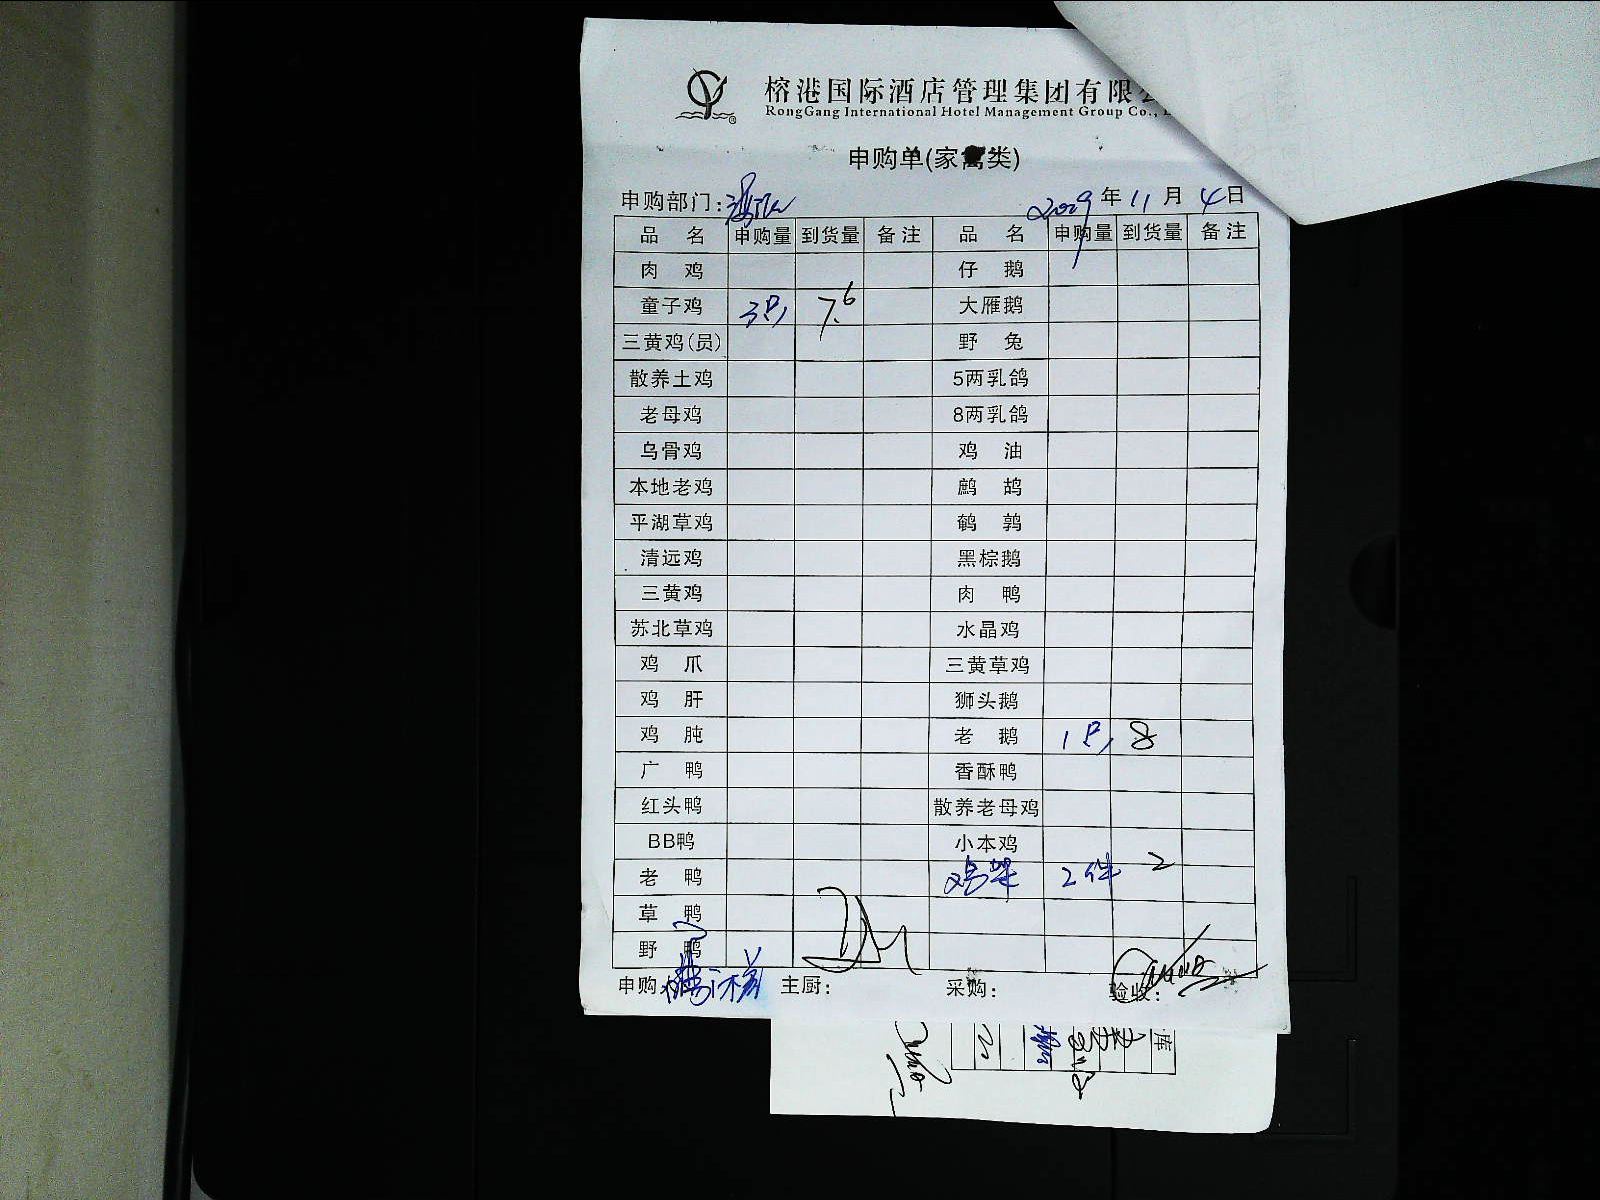 榕港国际酒店管理集团有限
RongGang International Hotel Management Group Co.,
申购单(家禽类)
申购部门: 2009年11月4日
品名 申购量 到货量 备注 品名 申购量 到货量 备注
肉鸡 仔鹅
童子鸡 3只 7.6 大雁鹅
三黄鸡(员) 野兔
散养土鸡 5两乳鸽
老母鸡 8两乳鸽
乌骨鸡 鸡油
本地老鸡 鹧鸪
平湖草鸡 鹌鹑
清远鸡 黑棕鹅
三黄鸡 肉鸭
苏北草鸡 水晶鸡
鸡爪 三黄草鸡
鸡肝 狮头鹅
鸡肫 老鹅 1只 8
广鸭 香酥鸭
红头鸭 散养老母鸡
BB鸭 小本鸡
老鸭 鸡架 2件 2
草鸭
野鸭
申购 主厨: 采购: 验收:
库